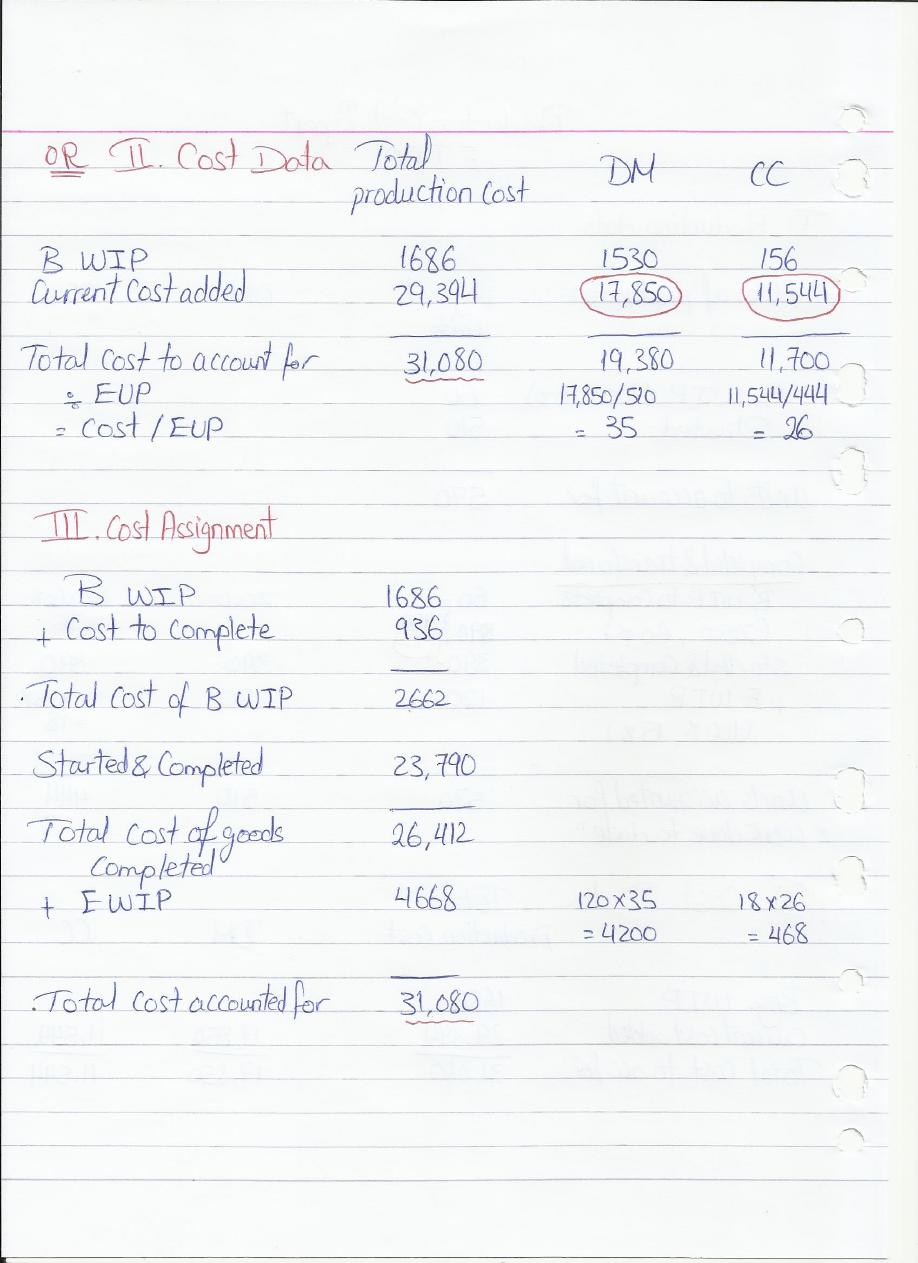 OR II. Cost Data Total production Cost DM CC
B WIP 1686 1530 156
Current Cost added 29,394 17,850 11,544
Total Cost to account for 31,080 19,380 11,700
÷ EUP 17,850/510 11,544/444
= Cost / EUP = 35 = 26
III. Cost Assignment
B WIP 1686
+ Cost to Complete 936
.Total Cost of B WIP 2662
Started & Completed 23,790
Total Cost of goods 26,412
Completed
+ E WIP 4668 120x35 18x26
= 4200 = 468
.Total Cost accounted for 31,080